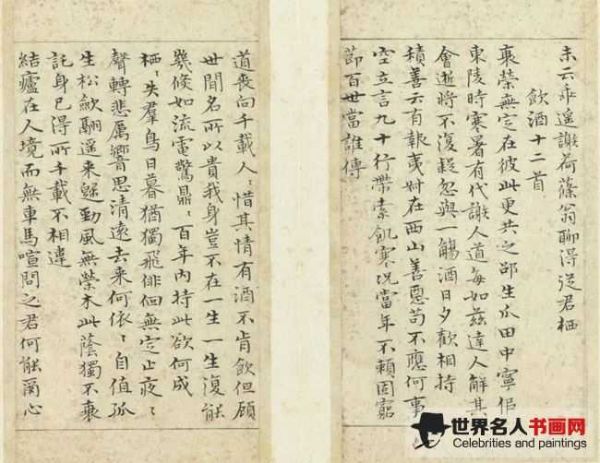 未云乖遥謝荷蓧翁聊得從君栖
飲酒十二首
衰榮無定在彼此更共之邵生瓜田中寧佀
東陵時寒暑有代謝人道每如茲達人解其
會逝將不復疑忽與一觴酒日夕歡相持
積善云有報夷叔在西山善惡苟不應何事
空立言九十行帶索飢寒況當年不賴固窮
節百世當誰傳
道喪向千載人〻惜其情有酒不肯飲但顧
世間名所以貴我身豈不在一生一生復能
幾倏如流電驚鼎〻百年內持此欲何成
栖〻失羣鳥日暮猶獨飛徘徊無定止夜〻
聲轉悲厲響思清遠去来何依〻自值孤
生松歛翮遥来歸勁風無榮木此蔭獨不衰
託身已得所千載不相違
結廬在人境而無車馬喧問之君何能爾心
世界名人书画网
Celebrities and paintings